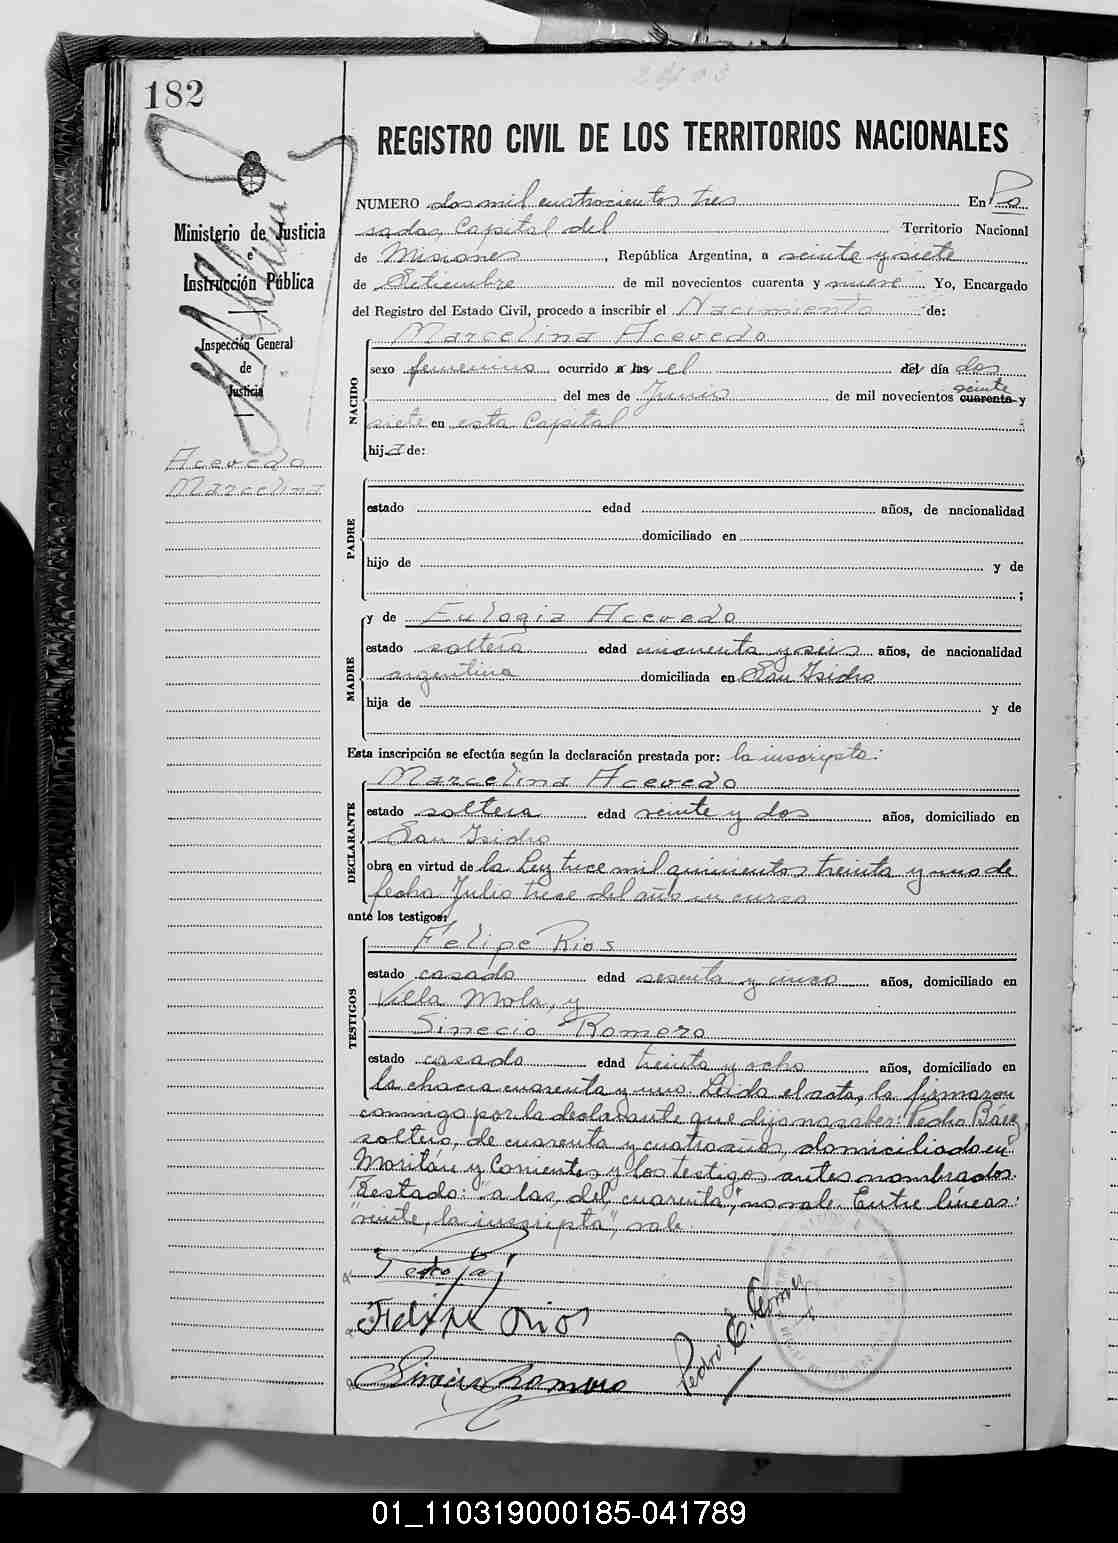 182
REGISTRO CIVIL DE LOS TERRITORIOS NACIONALES
Ministerio de Justicia
e
Instrucción Pública
Inspección General
de
Justicia
Acevedo
Marcelina
NUMERO dos mil cuatrocientos tres En Po
sadas, Capital del Territorio Nacional
de Misiones, República Argentina, a veinte y siete
de Setiembre de mil novecientos cuarenta y nueve Yo, Encargado
del Registro del Estado Civil, procedo a inscribir el Nacimiento de:
NACIDO
Marcelina Acevedo
sexo femenino ocurrido a las el del día dos
del mes de Junio de mil novecientos cuarenta veinte y
siete en esta Capital
hija de:
PADRE
estado edad años, de nacionalidad
domiciliado en
hijo de y de
;
MADRE
y de Eulogia Acevedo
estado soltera edad cincuenta y seis años, de nacionalidad
argentina domiciliada en San Isidro
hija de y de
Esta inscripción se efectúa según la declaración prestada por: la inscripta:
DECLARANTE
Marcelina Acevedo
estado soltera edad veinte y dos años, domiciliado en
San Isidro
obra en virtud de la Ley trece mil quinientos treinta y uno de
fecha Julio trece del año en curso
ante los testigos:
TESTIGOS
Felipe Rios
estado casado edad sesenta y cinco años, domiciliado en
Villa Mola, y
Sinecio Romero
estado casado edad treinta y ocho años, domiciliado en
la chacra cuarenta y uno. Leida el acta, la firmaron
conmigo por la declarante que dijo no saber: Pedro Báez,
soltero, de cuarenta y cuatro años, domiciliado en
Moritán y Corrientes y los testigos antes nombrados.
Testado: "a las, del, cuarenta", no vale. Entre líneas:
"veinte, la inscripta", vale.
Felipe Rios
Sinecio Romero
Pedro E. Gomez
01_110319000185-041789